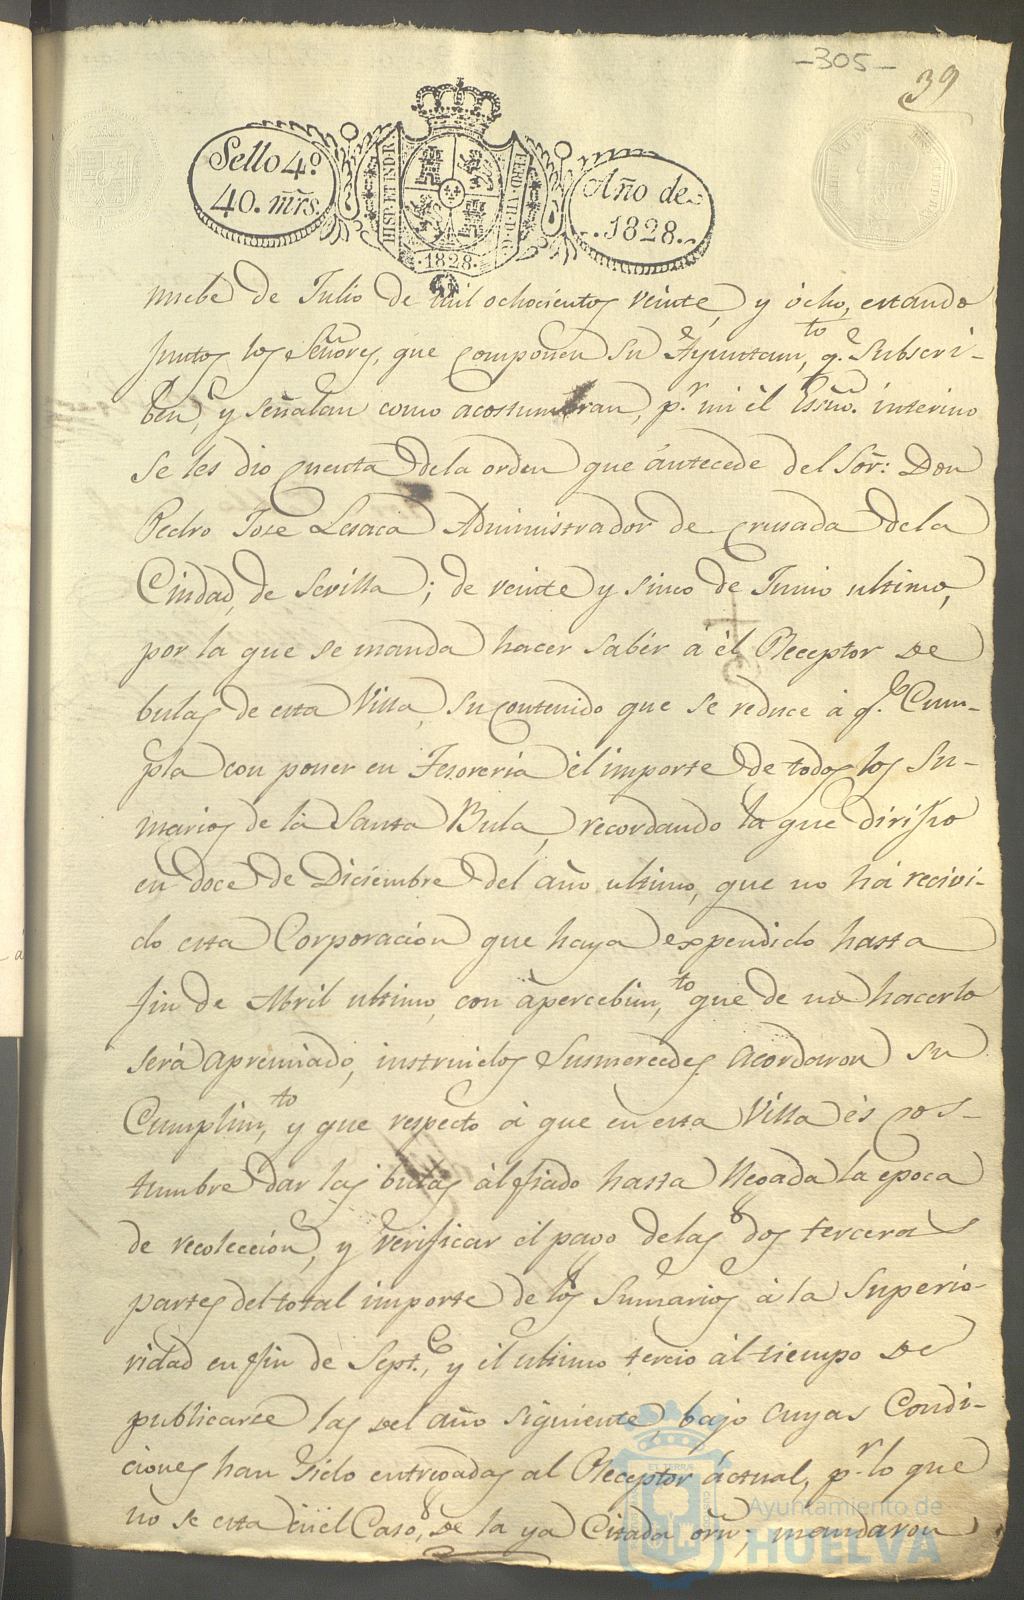 -305-
39
Sello 4º
40. mrs.
HISP. ET IND. R.
FERD. VII. D. G.
.1828.
Año de
1828.
nuebe de Julio de mil ochocientos veinte, y ócho, estando
juntos los Señores, que componen su Ayuntamto, q.e Subscri-
ben, y señalan como acostumbran, p.r mi él Essno. interino
se les dio cuenta dela orden que ántecede del Sor: Don
Pedro Jose Lesaca Administrador de Crusada dela
Ciudad, de Sevilla; de veinte y sinco de Junio ultimo,
por la que se manda hacer sabér á él Receptor de
bulas de esta Villa, su contenido que se reduce á q.e Cum-
pla con poner en Tesoreria él importe de todos los Su-
marios de la Santa Bula, recordando la que dirijio
en doce de Diciembre del año ultimo, que no há recivi-
do esta Corporacion que haya expendido hasta
fin de Abril ultimo, con àpercebim,to que de no hacerlo
será apremiado, instruidos Susmercedes acordaron su
Cumplim,to y que respecto á que en esta Villa és cos-
tumbre dar las bulas álfiado hasta llegada la epoca
de recoleccion, y verificar el pago delas dos terceras
partes del total importe de los Sumarios á la Superio-
ridad en fin de Sept.e, y él ultimo tercio ál tiempo de
publicarse las del año siguiente, bajo cuyas Condi-
ciones han sido entregadas al Receptor áctual, p.r lo que
no se esta en el Caso, de la ya Citada orn, mandaron
EL TERRÆ
Ayuntamiento de
HUELVA